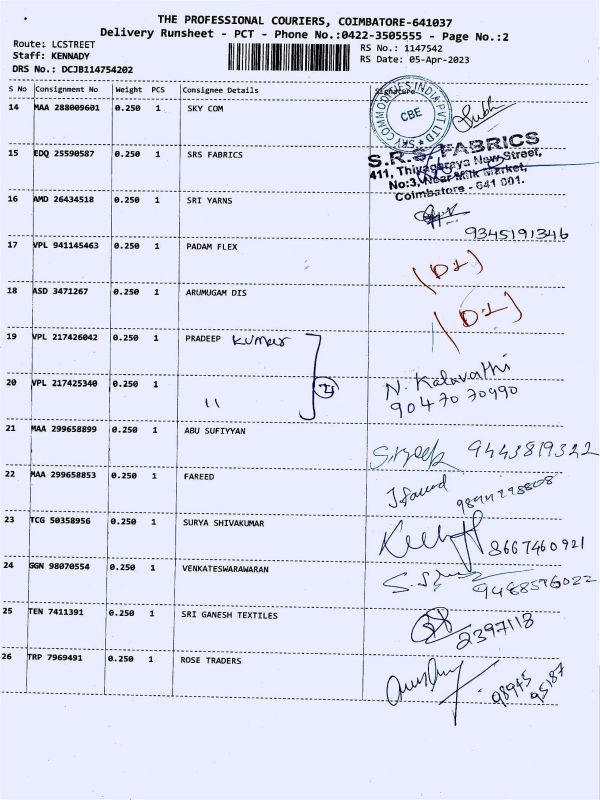 THE PROFESSIONAL COURIERS, COIMBATORE-641037
Delivery Runsheet - PCT - Phone No.:0422-3505555 - Page No.:2
Route: LCSTREET
Staff: KENNADY
DRS No.: DCJB114754202
RS No.: 1147542
RS Date: 05-Apr-2023
S No Consignment No Weight PCS Consignee Details Signature
14 MAA 288009601 0.250 1 SKY COM
SKY COMMODITIES INDIA PVT LTD
CBE
15 EDQ 25590587 0.250 1 SRS FABRICS
S.R.S. FABRICS
411, Thiyagaraya New Street,
No:3, Near Milk Market,
Coimbatore - 641 001.
16 AMD 26434518 0.250 1 SRI YARNS
9345191346
17 VPL 941145463 0.250 1 PADAM FLEX
(D1)
18 ASD 3471267 0.250 1 ARUMUGAM DIS
(D1)
19 VPL 217426042 0.250 1 PRADEEP Kumar
20 VPL 217425340 0.250 1 "
N. Kalavathi
90470 70990
21 MAA 299658899 0.250 1 ABU SUFIYYAN
9443819322
22 MAA 299658853 0.250 1 FAREED
23 TCG 50358956 0.250 1 SURYA SHIVAKUMAR
8667460921
24 GGN 98070554 0.250 1 VENKATESWARAWARAN
9488576022
25 TEN 7411391 0.250 1 SRI GANESH TEXTILES
2397118
26 TRP 7969491 0.250 1 ROSE TRADERS
98945
95187